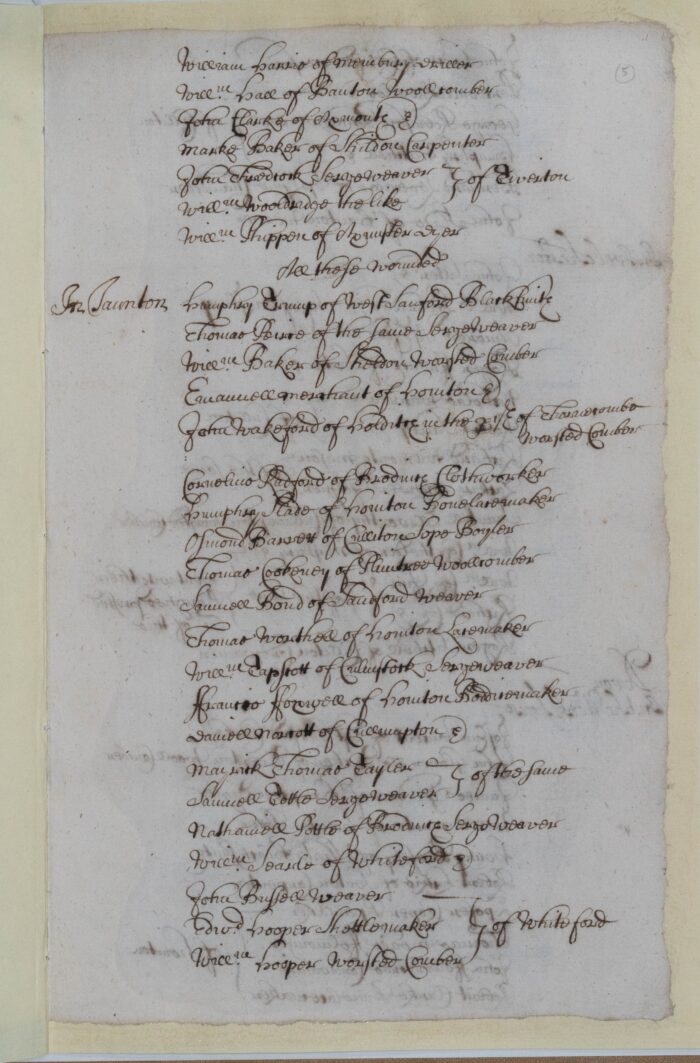 (5)
William Harris of Membury Driller
Will.m Hall of Banton Woollcomber
John Clarke of Axmonth
Marke Baker of Shildon Carpenter
John Thredcock Sergeweaver } of Tiverton
Will.m Wooldridge the like
Will.m Phippen of Axmister Dyer
All these wounded
In Taunton Humphry Trump of West Sanford Blacksmith
Thomas Peirce of the same Serge Weaver
Will.m Baker of Sheldon Worsted Comber
Emannell merchant of Honiton
John Wakeford of Holditch in the of Thornecombe
Worsted Comber
Cornelius Radford of Brodwich Clothworker
Humphry Slade of Honiton Bonelacemaker
Osmond Barrett of Culliton Sope Boyler
Thomas Cookeney of Plimtree Woollcomber
Samuell Bond of Sandford Weaver
Thomas Worthell of Honiton Lacemaker
Will.m Tapscott of Culmstock Sergeweaver
ffrancis ffoxwell of Honiton Bodicemaker
Daniell Norcott of Cullumpton
Mayrick Thomas Tayler } of the same
Samuell Tottle Serge Weaver
Nathaniell Pottle of Brodwich Serge Weaver
Will.m Searle of Whiteford
John Bussell Weaver
Edw.d Hooper Shottlemaker } of Whiteford
Will.m Hooper Worsted Comber